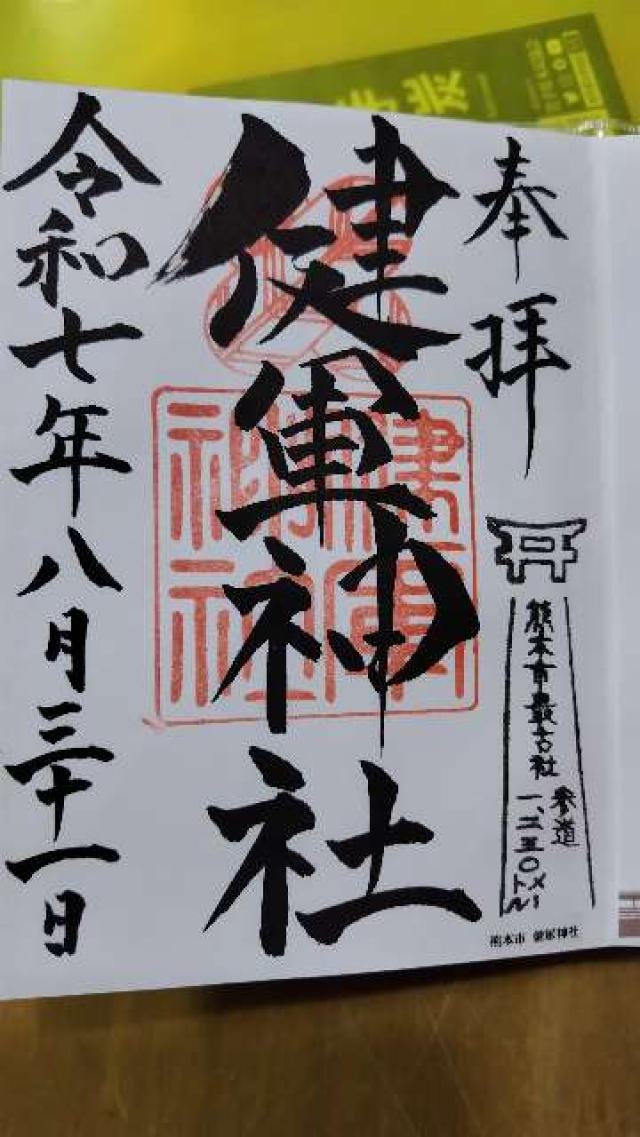 奉拝
健軍神社
健軍
神社
熊本市最古社
参道
一、二五〇メートル
熊本市 健軍神社
令和七年八月三十一日